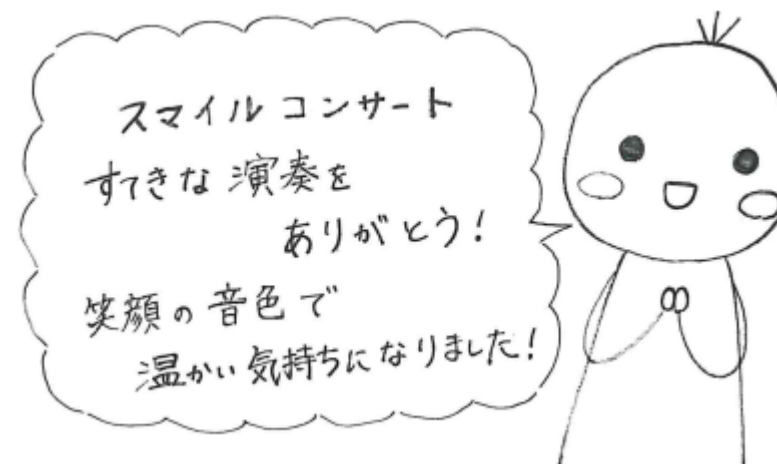 スマイルコンサート
すてきな演奏を
ありがとう!
笑顔の音色で
温かい気持ちになりました!